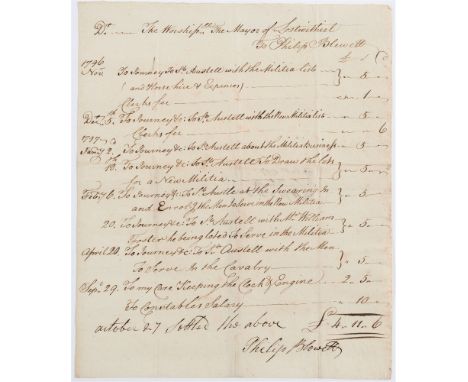 Dr. The Worshipll. The Mayor of Lostwithiel
To Philip Blewett
£ S D
1796
Novr To Journey To St. Austell with the Militia lists
(and Horse hire & Expences) 5
Clerks fee 1
Decr. 5th To Journey &c: To St. Austell with the New Militia list 5
Clerks fee 6
1797
Janry 2 To Journey &c: to St. Austell about the Militia Business 5
To Journey &c: to St. Austell To Draw the lots
for a New Militia 5
Febry 6 To Journey &c: To St. Austle at the Swearing In
and Enrolg the Men Drawn in the New Militia 5
20 To Journey &c To St. Austell with Mr. William
Foster he being loted To Serve in the Militia 5
April 24 To Journey &c: To St. Austell with the Men
To Serve in the Cavalry 5
Sepr. 29 To my Care Keeping the Clock & Engine 2 5
To Constables Salary 10
october 27 Setled the above £ 4 11 6
Philip Blewett